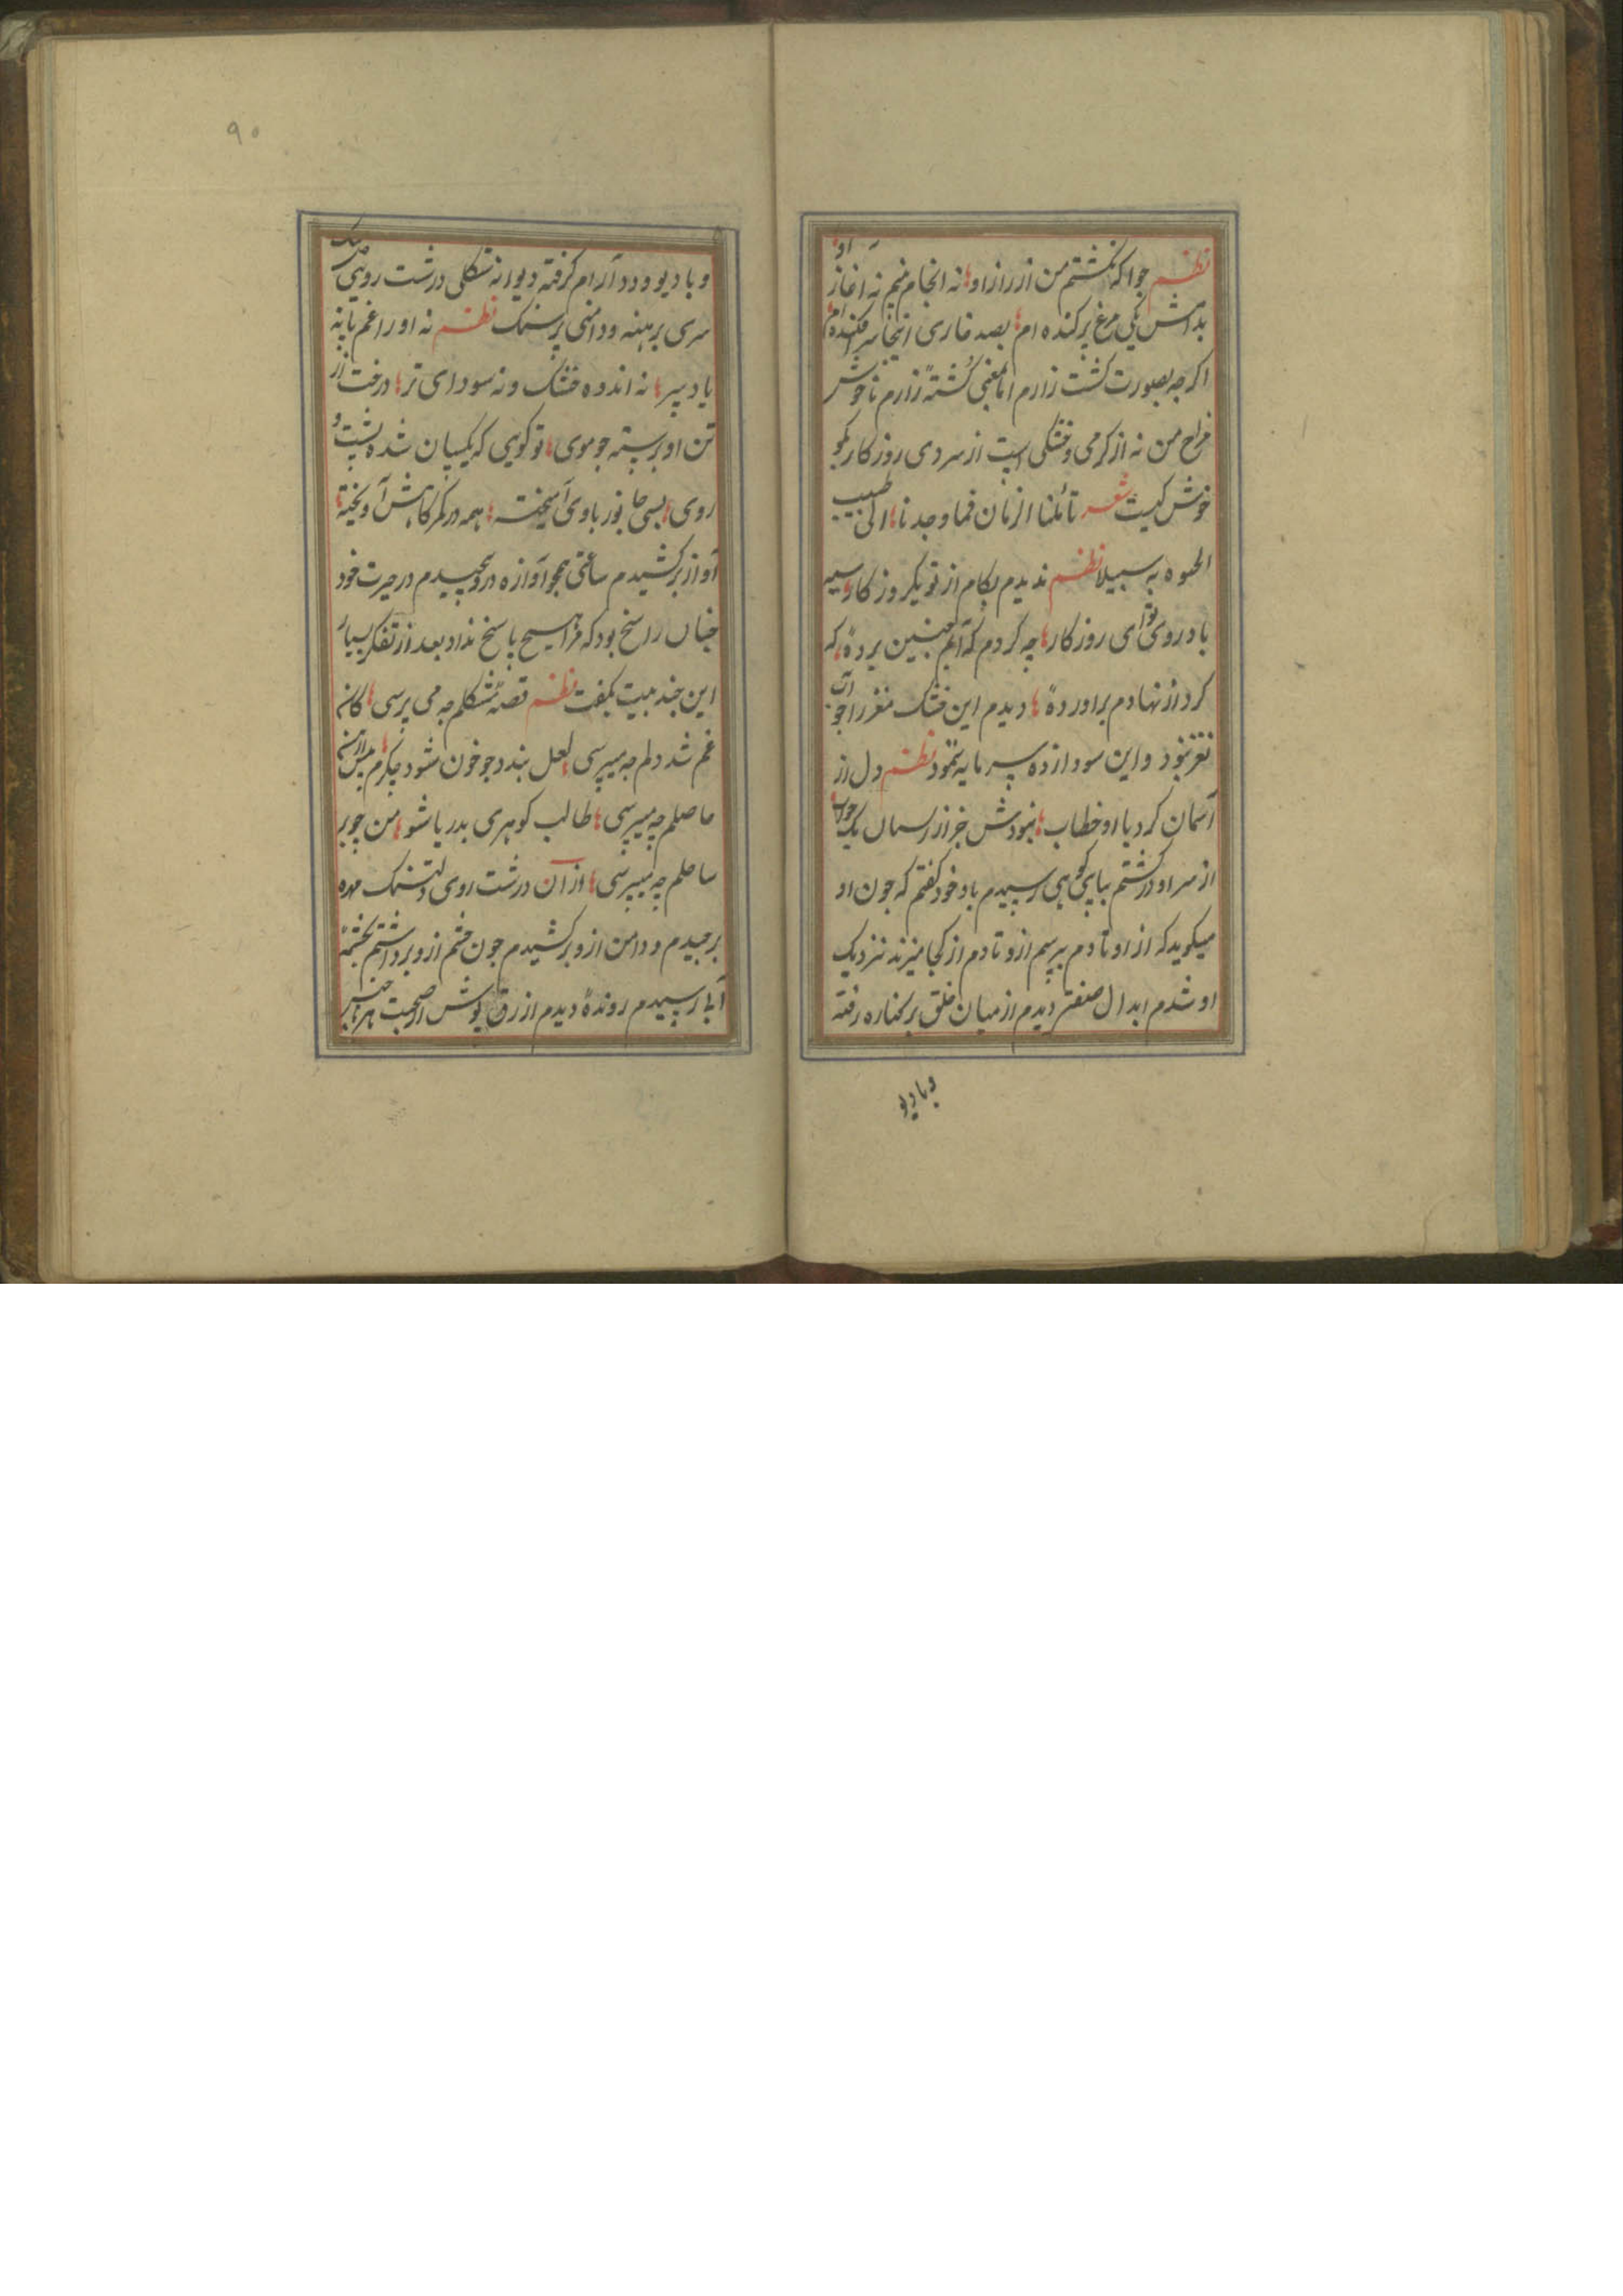 نظم جو اکه نکشتم من از راز او نه انجام منم نه آغاز او
بدانش یکی مرغ پر کنده ام بصد خاری اینجا سر افکنده ام
اکرچه بصورت کشت زارم اما بمعنی کُشتهٔ زارم ناخوش
مزاح من نه از کرمی و خشکی است از سردی روزکار بکو
خوش کیست شعر تأملنا الزمان فما وجدنا الی طیب
الحیوه به سبیلا نظم ندیدم بکام از تو یکروز کار سیه
باد روی تو ای روزکار چه کردم که آبم چنین بردهٔ که
کرد از نهادم براوردهٔ دیدم این خشک مغز را جو آن
نغز نبود و این سودا زده سرمایه ننمود نظم دل از
آسمان کرد با او خطاب نبودش جز از ریسمان یک جواب
از سر او درکذشتم بپای کوهی رسیدم با خود کفتم که جون او
میکوید که از او تا دم بپرسم ازو تا دم از کجا میزند نزدیک
او شدم ابدال صفتی دیدم از میان خلق بر کناره رفته
و با دیو
۹۰
و با دیو و دد آرام کرفته دیوانه شکلی درشت رویی
سری برهنه و دامنی پر سنک نظم نه او را غم پا نه
یاد سر نه اندوه خشک و نه سودای تر درخت از
تن او برسته جو موی تو کویی که یکسان شده پشت و
روی بسی جانور با وی آمیخته همه در کمرکاهش آویخته
آواز برکشیدم ساعتی همجو آوازه درو پیچیدم در حیرت خود
جنان راسخ بود که مرا هیچ پاسخ نداد بعد از تفکر بسیار
این جند بیت بکفت نظم قصهٔ مشکلم جه می پرسی کان
غم شد دلم جه میپرسی لعل بندد جو خون شود جکرم
حاصلم چه میپرسی طالب کوهری بدریا شو من چو بر
ساحلم چه میپرسی از آن درشت روی دلتنک مهره
برجیدم و دامن ازو برکشیدم جون چشم ازو برداشتم بچشمهٔ
آبی رسیدم روندهٔ دیدم ازرق پوش از صحبت